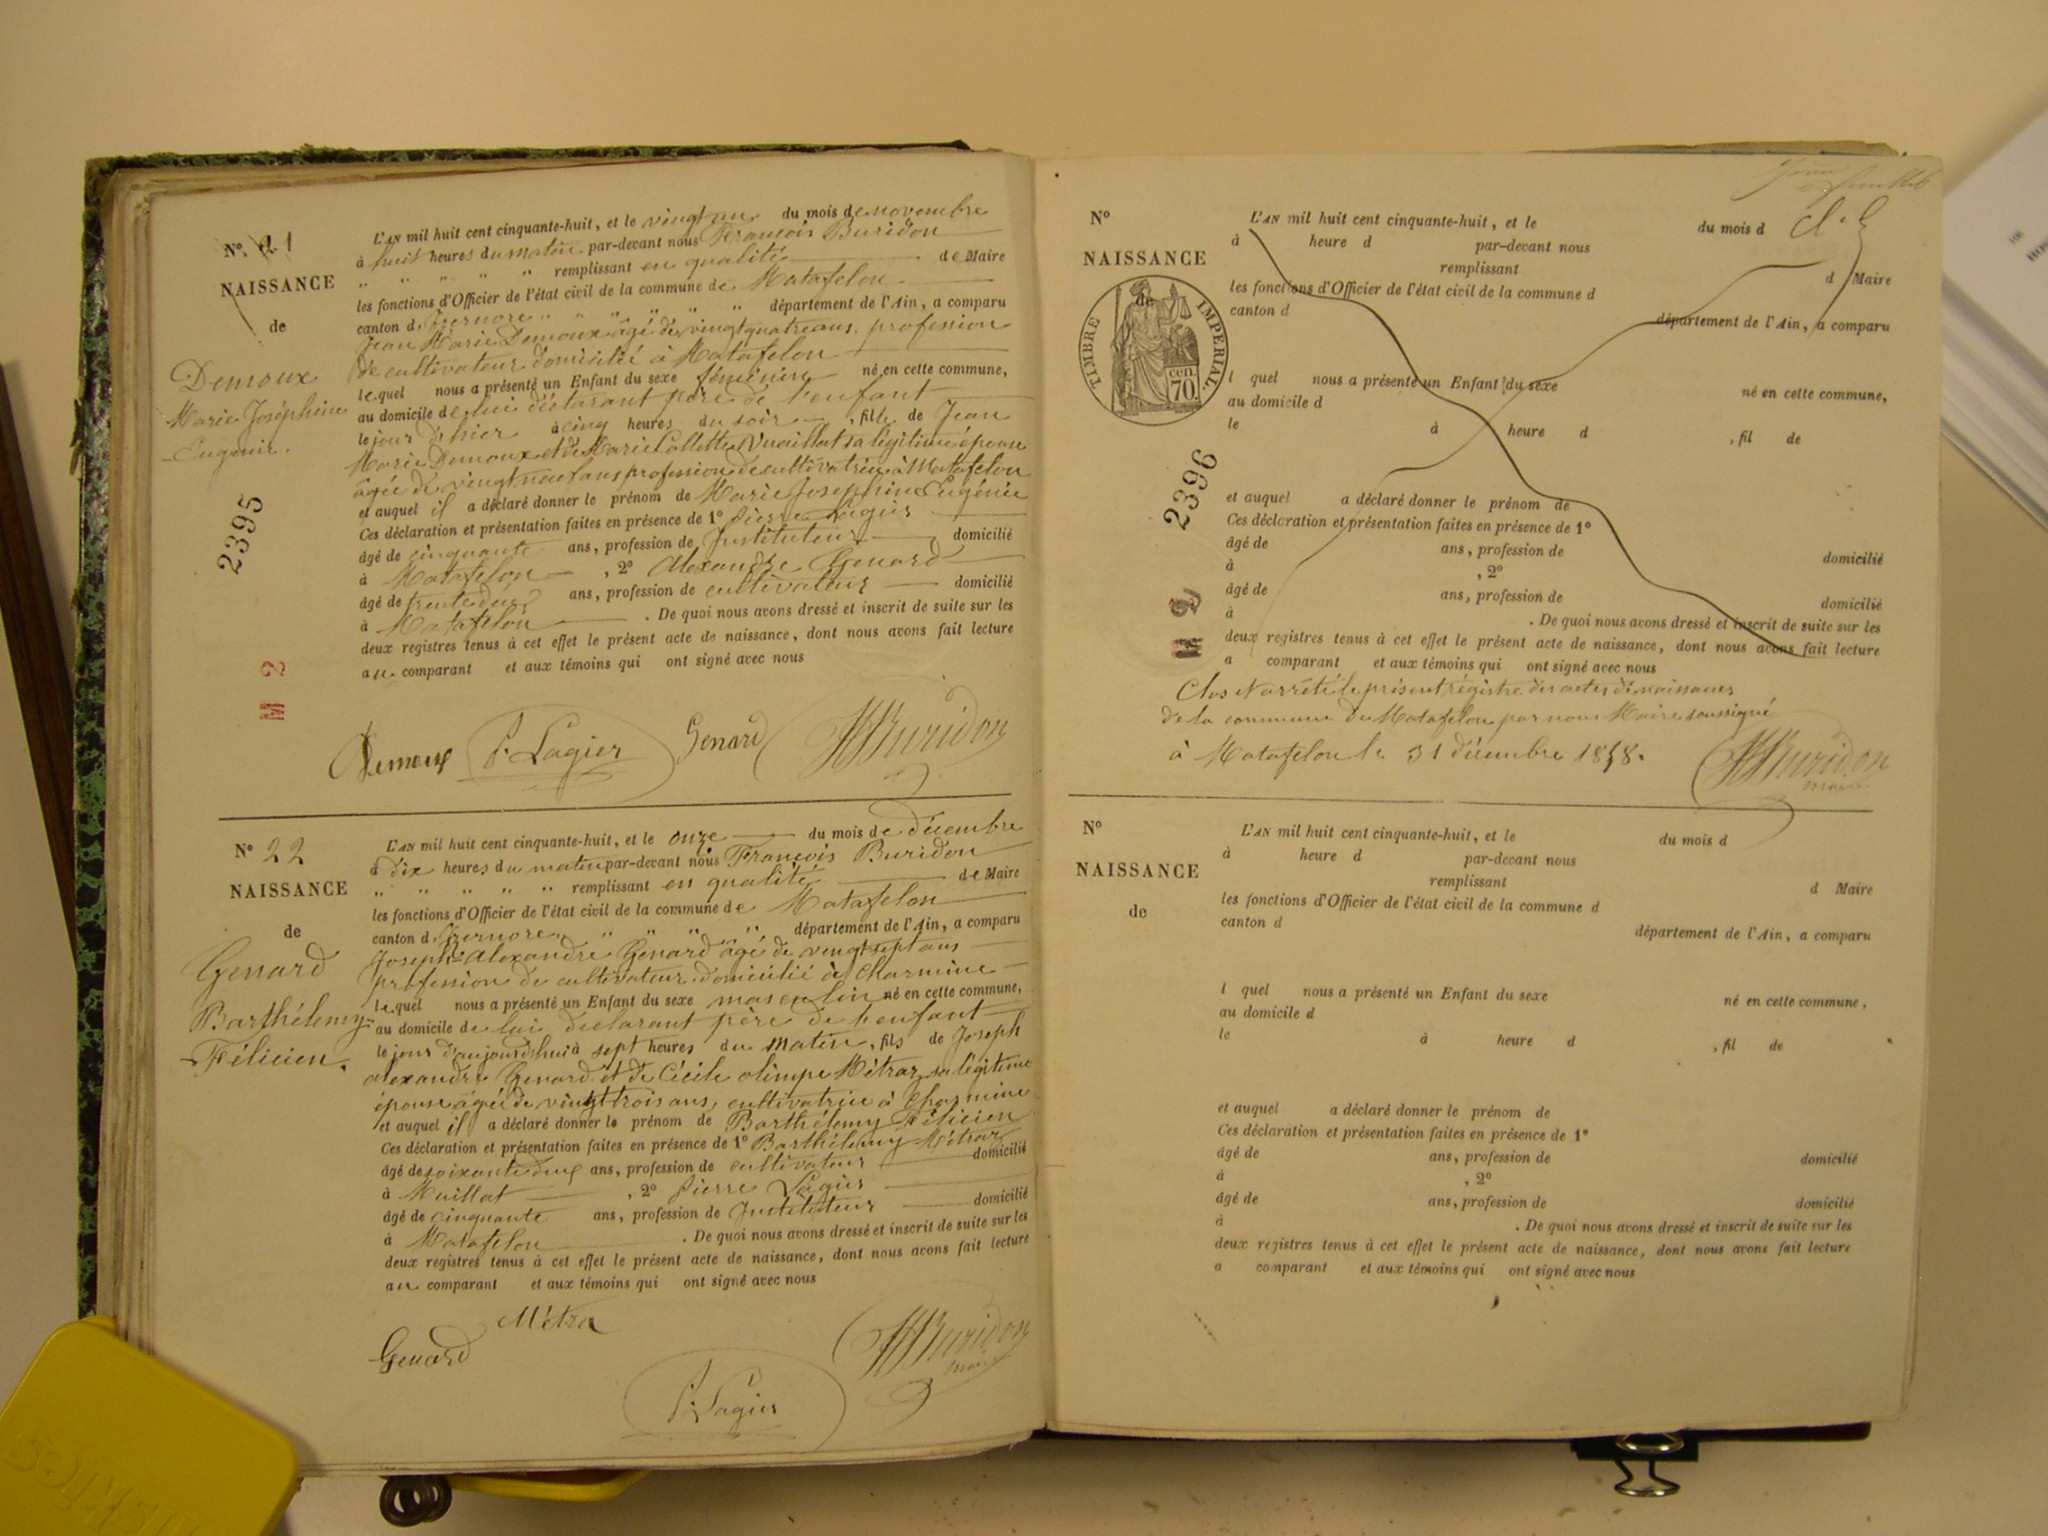 N° 21
NAISSANCE
de
Demoux
Marie Joséphine
Eugénie.
2395
M 2
L'AN mil huit cent cinquante-huit, et le vingt un du mois de novembre
à huit heures du matin par-devant nous François Buridon
" " " " " remplissant en qualité de Maire
les fonctions d'Officier de l'état civil de la commune de Matafelon
canton d'Izernore " " " " " département de l'Ain, a comparu
Jean Marie Demoux âgé de vingt quatre ans, profession
de cultivateur domicilié à Matafelon
lequel nous a présenté un Enfant du sexe féminin né en cette commune,
au domicile de lui déclarant père de l'enfant
le jour d'hier à cinq heures du soir, fille de Jean
Marie Demoux et de Marie Collette Vuaillat sa légitime épouse
âgée de vingt neuf ans profession de cultivatrice à Matafelon
et auquel il a déclaré donner le prénom de Marie Josephine Eugénie
Ces déclaration et présentation faites en présence de 1° pierre Lagier
âgé de cinquante ans, profession de Instituteur domicilié
à Matafelon, 2° Alexandre Genard
âgé de trente deux ans, profession de cultivateur domicilié
à Matafelon. De quoi nous avons dressé et inscrit de suite sur les
deux registres tenus à cet effet le présent acte de naissance, dont nous avons fait lecture
au comparant et aux témoins qui ont signé avec nous
Demoux P. Lagier Genard Buridon
N° 22
NAISSANCE
de
Genard
Barthélemy
Félicien.
L'AN mil huit cent cinquante-huit, et le onze du mois de décembre
à dix heures du matin par-devant nous François Buridon
" " " " " remplissant en qualité de Maire
les fonctions d'Officier de l'état civil de la commune de Matafelon
canton d'Izernore " " " " département de l'Ain, a comparu
Joseph Alexandre Genard âgé de vingt sept ans
profession de cultivateur domicilié à Charmine
lequel nous a présenté un Enfant du sexe masculin né en cette commune,
au domicile de lui declarant père de l'enfant
le jour d'aujourdhui à sept heures du matin, fils de Joseph
alexandre Genard et de Cécile olimpe Métraz sa légitime
épouse âgée de vingt trois ans, cultivatrice à Charmine
et auquel il a déclaré donner le prénom de Barthélemy Félicien
Ces déclaration et présentation faites en présence de 1° Barthélemy Métraz
âgé de soixante deux ans, profession de cultivateur domicilié
à Maillat, 2° pierre Lagier
âgé de cinquante ans, profession de Instituteur domicilié
à Matafelon. De quoi nous avons dressé et inscrit de suite sur les
deux registres tenus à cet effet le présent acte de naissance, dont nous avons fait lecture
au comparant et aux témoins qui ont signé avec nous
Métra
Genard
Buridon
maire
P. Lagier
N°
NAISSANCE
de
TIMBRE IMPERIAL
cen.
70.
2396
M 2
L'AN mil huit cent cinquante-huit, et le du mois d
à heure d par-devant nous
remplissant d Maire
les fonctions d'Officier de l'état civil de la commune d
canton d département de l'Ain, a comparu
l quel nous a présenté un Enfant du sexe né en cette commune,
au domicile d
le à heure d , fil de
et auquel a déclaré donner le prénom de
Ces déclaration et présentation faites en présence de 1°
âgé de ans, profession de domicilié
à , 2°
âgé de ans, profession de domicilié
à . De quoi nous avons dressé et inscrit de suite sur les
deux registres tenus à cet effet le présent acte de naissance, dont nous avons fait lecture
a comparant et aux témoins qui ont signé avec nous
Clos et arrêté le présent régistre des actes de naissances
de la commune de Matafelon par nous Maire soussigné
à Matafelon le 31 décembre 1858.
Buridon
maire
N°
NAISSANCE
de
L'AN mil huit cent cinquante-huit, et le du mois d
à heure d par-devant nous
remplissant d Maire
les fonctions d'Officier de l'état civil de la commune d
canton d département de l'Ain, a comparu
l quel nous a présenté un Enfant du sexe né en cette commune,
au domicile d
le à heure d , fil de
et auquel a déclaré donner le prénom de
Ces déclaration et présentation faites en présence de 1°
âgé de ans, profession de domicilié
à , 2°
âgé de ans, profession de domicilié
à . De quoi nous avons dressé et inscrit de suite sur les
deux registres tenus à cet effet le présent acte de naissance, dont nous avons fait lecture
a comparant et aux témoins qui ont signé avec nous